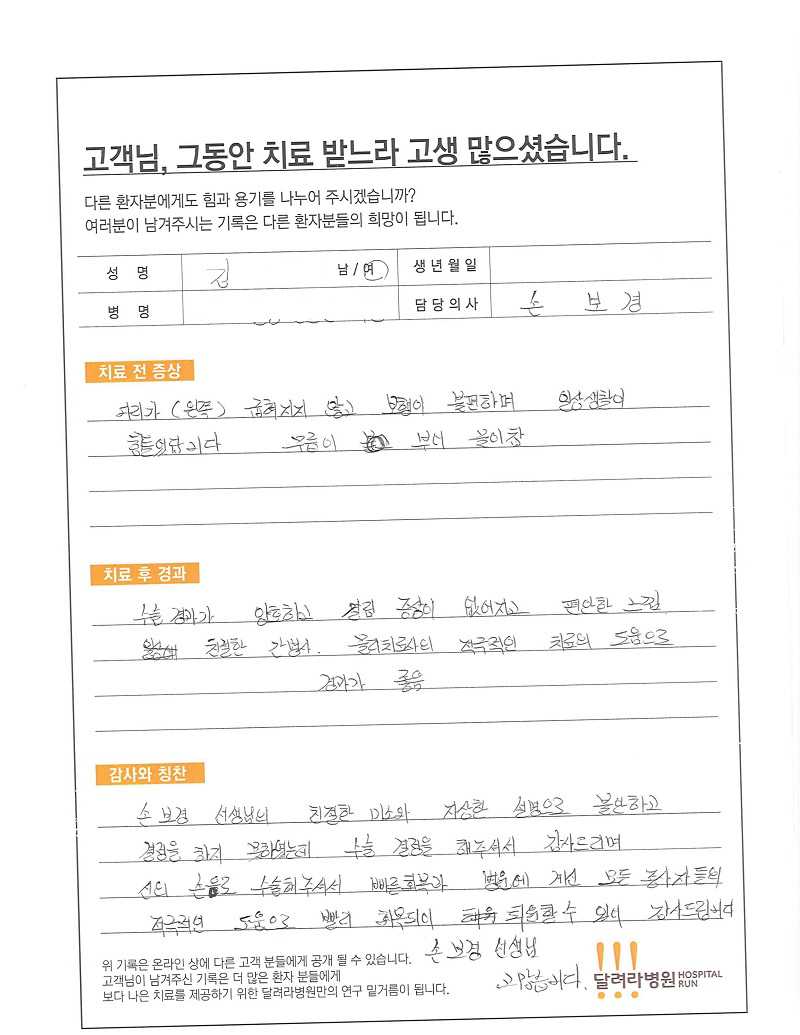 고객님, 그동안 치료 받느라 고생 많으셨습니다.
다른 환자분에게도 힘과 용기를 나누어 주시겠습니까?
여러분이 남겨주시는 기록은 다른 환자분들의 희망이 됩니다.
성 명 김 남/여 생년월일
병 명 담당의사 손 보 경
치료 전 증상
다리가 (왼쪽) 굽혀지지 않고 보행이 불편하며 일상생활이
힘들었답니다 무릎이 부어 물이참
치료 후 경과
수술 경과가 양호하고 결림 증상이 없어지고 편안한 느낌
친절한 간병사. 물리치료사의 적극적인 치료의 도움으로
경과가 좋음
감사와 칭찬
손 보경 선생님의 친절한 미소와 자상한 설명으로 불안하고
결정을 하지 못하였는데 수술 결정을 해주셔서 감사드리며
신의 손으로 수술해주셔서 빠른회복과 병원에 계신 모든 종사자들의
적극적인 도움으로 빨리 회복되어 퇴원할 수 있어 감사드립니다
손 보경 선생님
고맙습니다.
위 기록은 온라인 상에 다른 고객 분들에게 공개 될 수 있습니다.
고객님이 남겨주신 기록은 더 많은 환자 분들에게
보다 나은 치료를 제공하기 위한 달려라병원만의 연구 밑거름이 됩니다.
달려라병원 HOSPITAL RUN